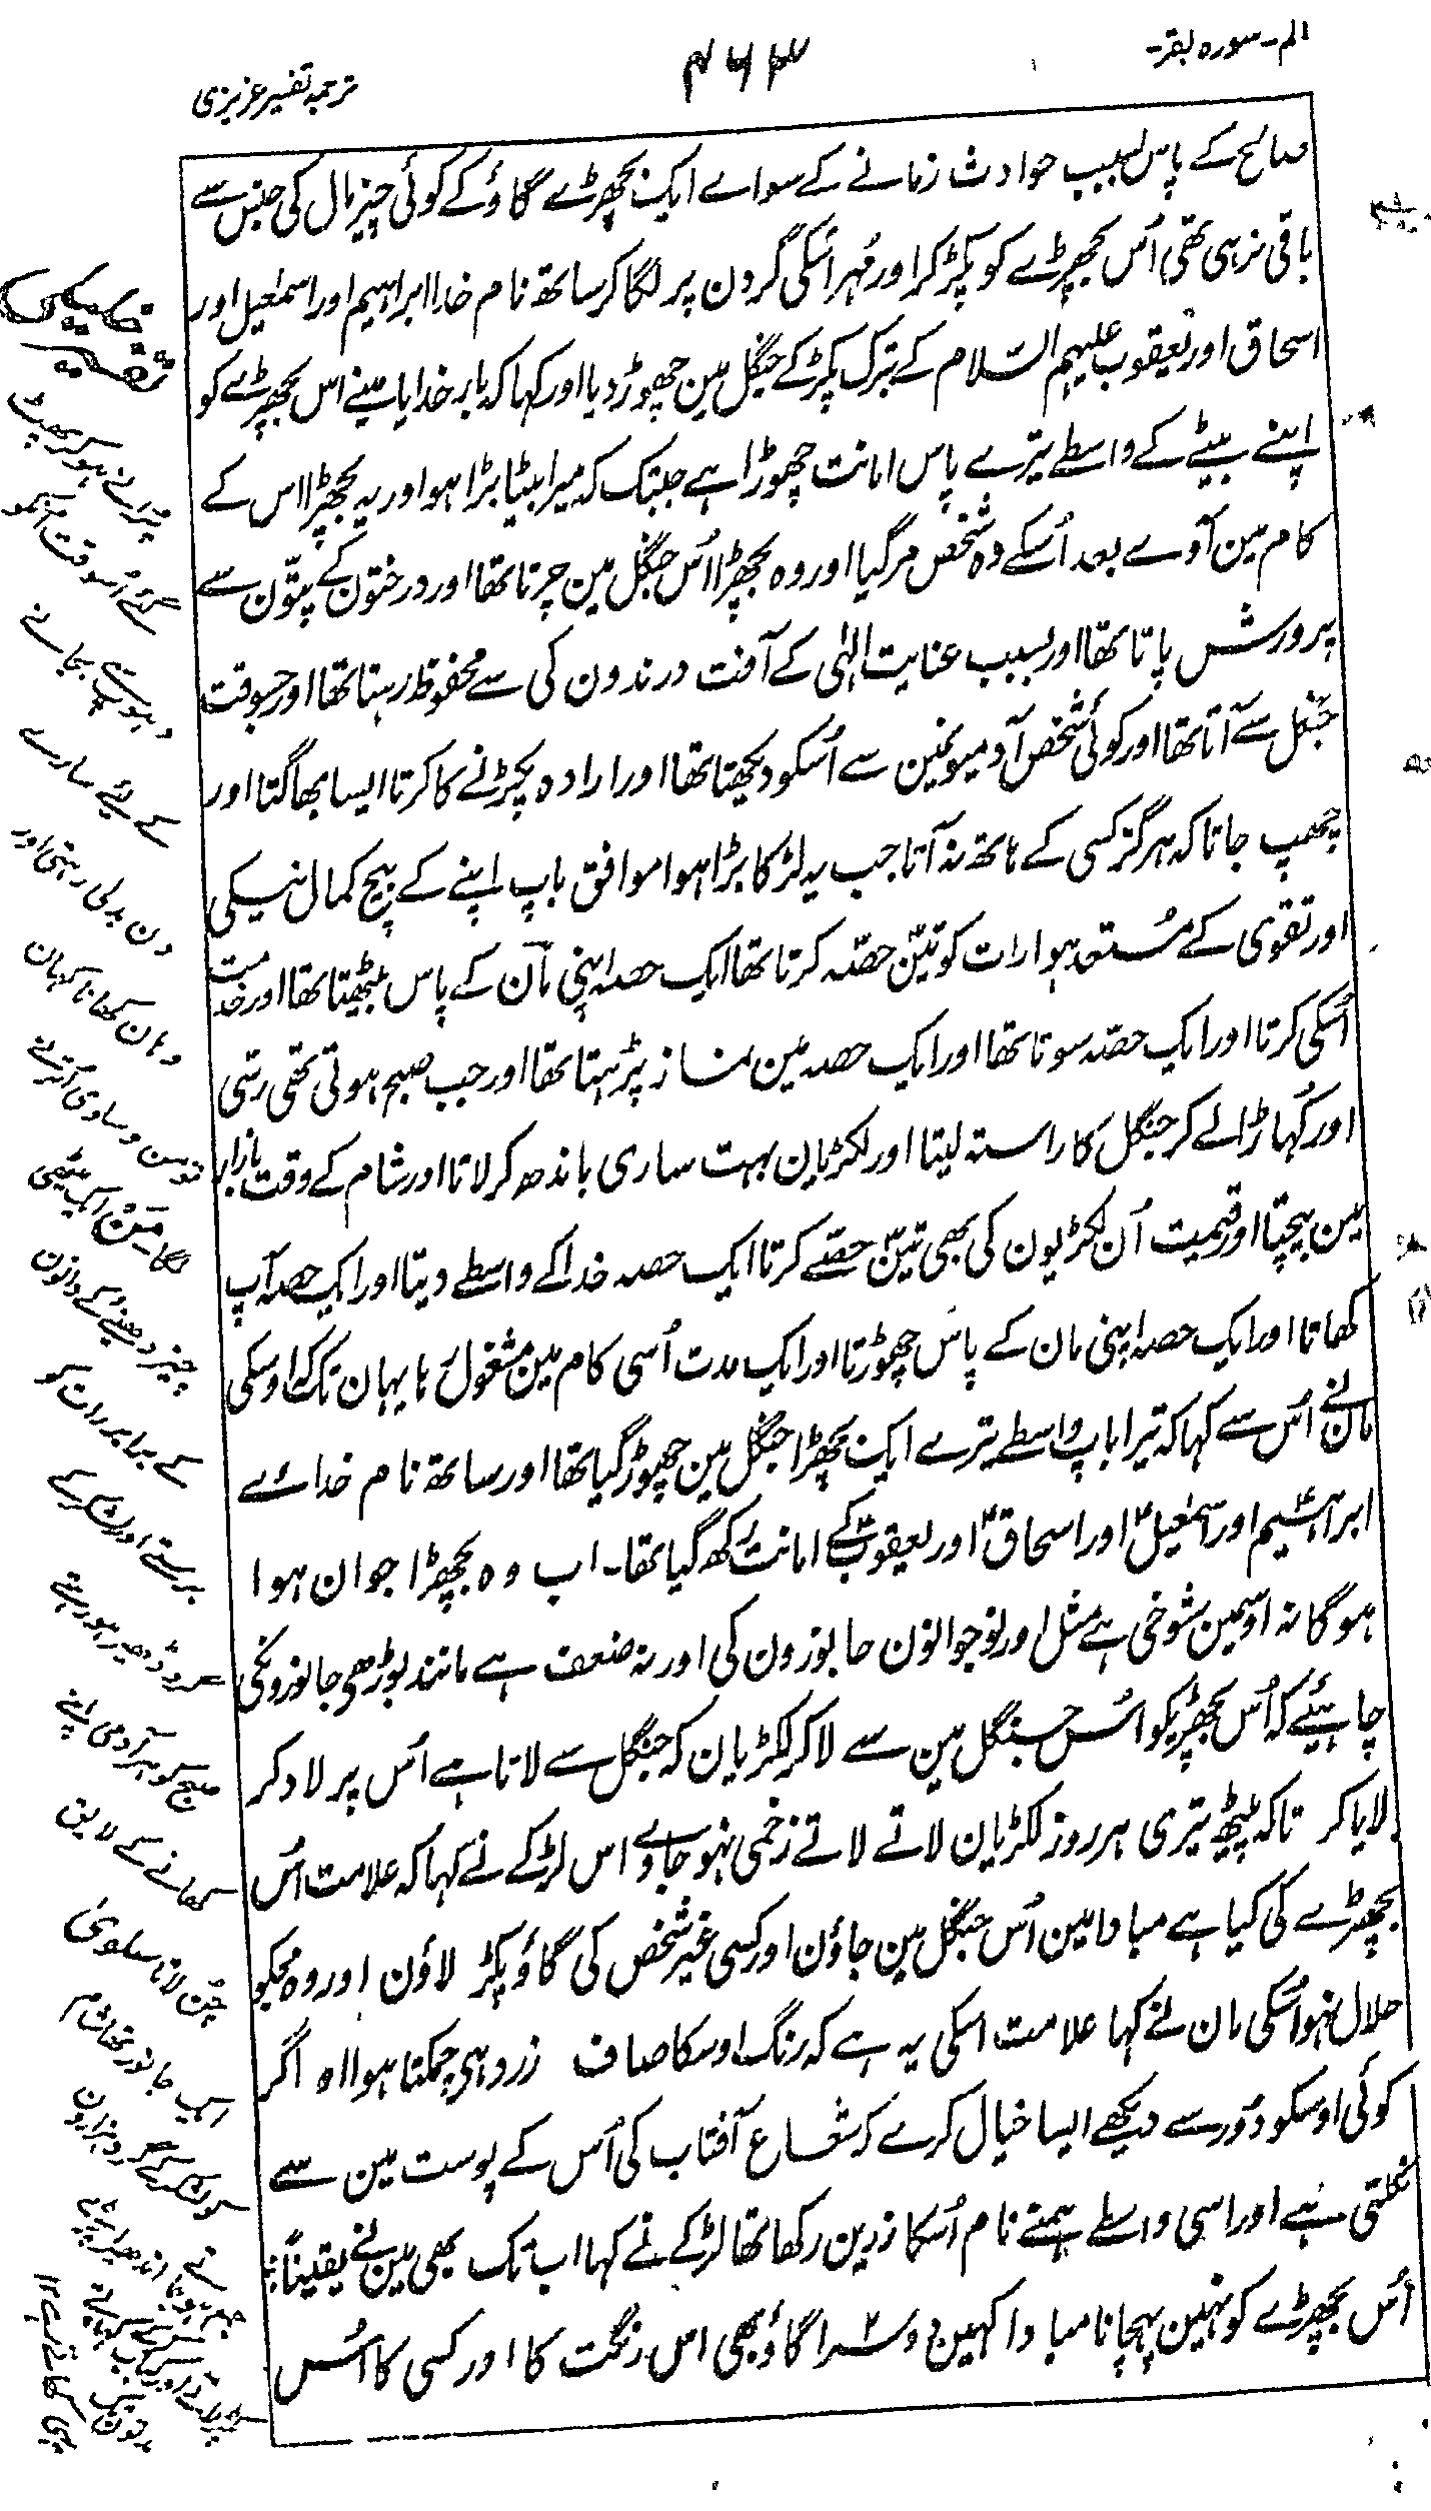 الم - سورہ بقر -
۴۶۳
ترجمہ تفسیر عزیزی
صالح کے پاس بسبب حوادث زمانے کے سواے ایک بچھڑے گاؤ کے کوئی چیز مال کی جنس سے
باقی نرہی تھی اُس بچھڑے کو پکڑ کر اور مُہر اُسکی گردن پر لگا کر ساتھ نام خدا ابراہیم اور اسمٰعیل اور
اسحاق اور یعقوب علیہم السّلام کے تبرک پکڑ کے جنگل مین چھوڑ دیا اور کہا کہ بار خدایا مینے اس بچھڑے کو
اپنے بیٹے کے واسطے تیرے پاس امانت چھوڑا ہے جبتک کہ میرا بیٹا بڑا ہو اور یہ بچھڑا اس کے
کام مین آوے بعد اُسکے وہ شخص مر گیا اور وہ بچھڑا اُس جنگل مین چرتا تھا اور درختون کے پتّون سے
پرورش پاتا تھا اور بسبب عنایت الٰہی کے آفت درندون کی سے محفوظ رہتا تھا اور جسوقت
جنگل سے آتا تھا اور کوئی شخص آدمیونمین سے اُسکو دیکھتا تھا اور ارادہ پکڑنے کا کرتا ایسا بھاگتا اور
چھپ جاتا کہ ہرگز کسی کے ہاتھ نہ آتا جب یہ لڑکا بڑا ہوا موافق باپ اپنے کے بیچ کمال نیکی
اور تقوی کے مُستعد ہوا رات کو تین حصّہ کرتا تھا ایک حصہ اپنی مان کے پاس بیٹھتا تھا اور خدمت
اُسکی کرتا اور ایک حصّہ سوتا تھا اور ایک حصہ مین نماز پڑہتا تھا اور جب صبح ہوتی تھی رسّی
اور کُہاڑا لے کر جنگل کا راستہ لیتا اور لکڑیان بہت ساری باندھ کر لاتا اور شام کے وقت بازار
مین بیچتا اور قیمت اُن لکڑیون کی بھی تین حصّے کرتا ایک حصہ خدا کے واسطے دیتا اور ایک حصہ آپ
کھاتا اور ایک حصہ اپنی مان کے پاس چھوڑتا اور ایک مدت اُسی کام مین مشغول رہا یہان تک کہ اوسکی
مان نے اُس سے کہا کہ تیرا باپ واسطے تیرے ایک بچھڑا جنگل مین چھوڑ گیا تھا اور ساتھ نام خداے
ابراہیم اور اسمٰعیل اور اسحاق اور یعقوب کے امانت رکھ گیا تھا۔ اب وہ بچھڑا جوان ہوا
ہوگا نہ اوسمین شوخی ہے مثل اور نوجوانون جانورون کی اور نہ ضعف ہے مانند بوڑھی جانورونکی
چاہیئے کہ اُس بچھڑیکو اُس جنگل مین سے لا کر لکڑیان کہ جنگل سے لاتا ہے اُس پر لاد کر
لایا کر تاکہ پیٹھ تیری ہر روز لکڑیان لاتے لاتے زخمی نہو جاوے اس لڑکے نے کہا کہ علامت اُس
بچھڑے کی کیا ہے مبادا مین اُس جنگل مین جاؤن اور کسی غیر شخص کی گاؤ پکڑ لاؤن اور وہ مجکو
حلال نہو اُسکی مان نے کہا علامت اسکی یہ ہے کہ رنگ اوسکا صاف زرد ہی چمکتا ہوا اہ اگر
کوئی اوسکو دور سے دیکھے ایسا خیال کرے کہ شعاع آفتاب کی اُس کے پوست مین سے
نکلتی ہے اور اسی واسطے ہمنے نام اُسکا زرین رکھا تھا لڑکے نے کہا اب تک بھی مین نے یقیناً
اُس بچھڑے کو نہین پہچانا مبادا کہین دوسرا گاؤ بھی اس رنگت کا اور کسی کا اُس
تفسیر
پُرانے ہو کر پھٹ
گئے اُسوقت
دہوپ سے بچانے
کے لیے سارے
دن بدلی رہتی اور
وہان کھانا کہان
لگا مَنّ ایک میٹھی
چیز دھنیے کے دانون
کے برابر رات کو
برستے اور لشکر کے
گرد ڈھیر ہو رہتے
صبح کو ہر آدمی اپنے
کھانے کے لایق
چُن لاتا سلویٰ
ایک جانور تھا شام
کو لشکر کے گرد ہزارون